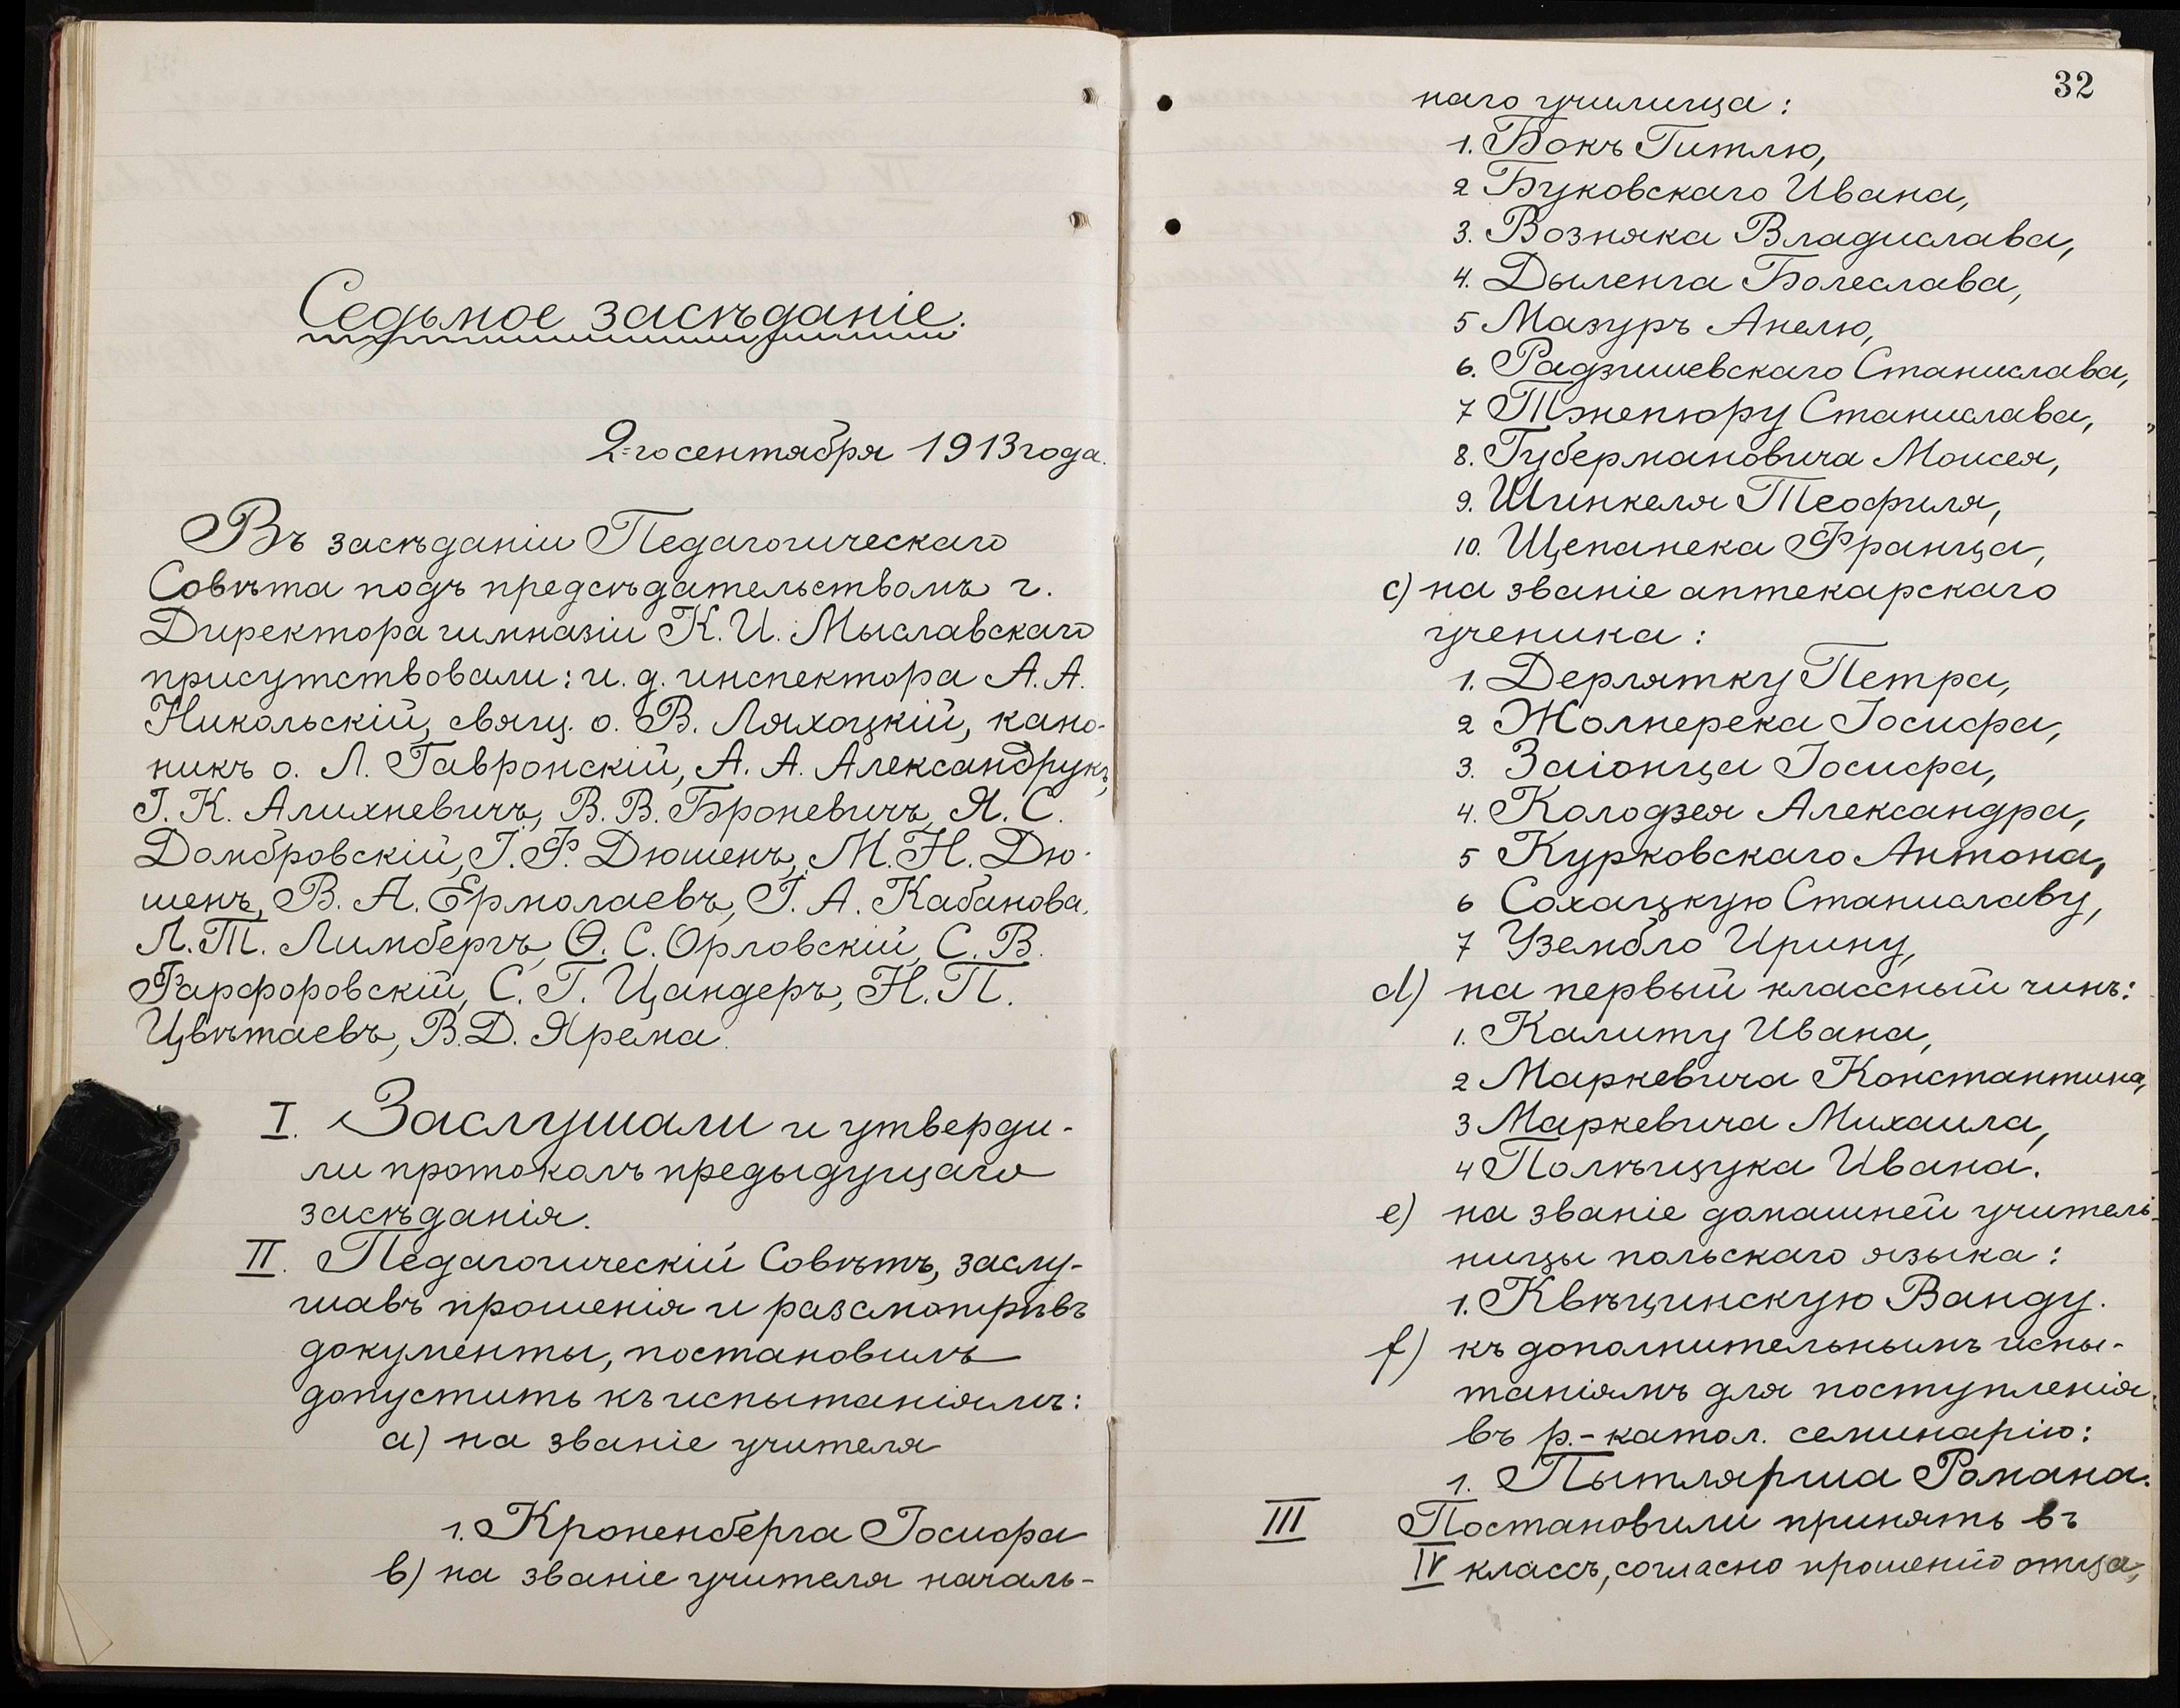 Седьмое засѣданіе.
2-го сентября 1913 года.
Въ засѣданіи Педагогическаго
Совѣта подъ предсѣдательствомъ г.
Директора гимназіи К. И. Мыславскаго
присутствовали: и. д. инспектора А. А.
Никольскій, свящ. о. В. Ляхоцкій, кано-
никъ о. Л. Гавронскій, А. А. Александрукъ,
І. К. Алихневичъ, В. В. Броневичъ, Я. С.
Домбровскій, І. Ф. Дюшенъ, М. Н. Дю-
шенъ, В. А. Ермолаевъ, Г. А. Кабанова,
Л. Т. Лимбергъ, Ѳ. С. Орловскій, С. В.
Фарфоровскій, С. Г. Цандеръ, Н. П.
Цвѣтаевъ, В. Д. Ярема.
I. Заслушали и утверди-
ли протоколъ предыдущаго
засѣданія.
II. Педагогическій Совѣтъ, заслу-
шавъ прошенія и разсмотрѣвъ
документы, постановилъ
допустить къ испытаніямъ:
a) на званіе учителя
1. Кроненберга Іосифа
b) на званіе учителя началь-
32
наго училища:
1. Бокъ Гитлю,
2 Буковскаго Ивана,
3. Возняка Владислава,
4. Дыленга Болеслава,
5 Мазуръ Анелю,
6. Радзишевскаго Станислава,
7 Тжепюру Станислава,
8. Губермановича Моисея,
9. Шинкеля Теофиля,
10. Щепанека Франца,
c) на званіе аптекарскаго
ученика:
1. Дерлятку Петра,
2 Жолперека Іосифа,
3. Заіонца Іосифа,
4. Колодзея Александра,
5 Курковскаго Антона,
6 Сохацкую Станиславу,
7 Узембло Ирину,
d) на первый классный чинъ:
1. Калиту Ивана,
2 Маркевича Константина,
3 Маркевича Михаила,
4 Полѣщука Ивана.
e) на званіе домашней учитель-
ницы польскаго языка:
1. Квѣцинскую Ванду.
f) къ дополнительнымъ испы-
таніямъ для поступленія
въ р.-катол. семинарію:
1. Пытлярша Романа.
III Постановили принять въ
IV классъ, согласно прошенію отца,